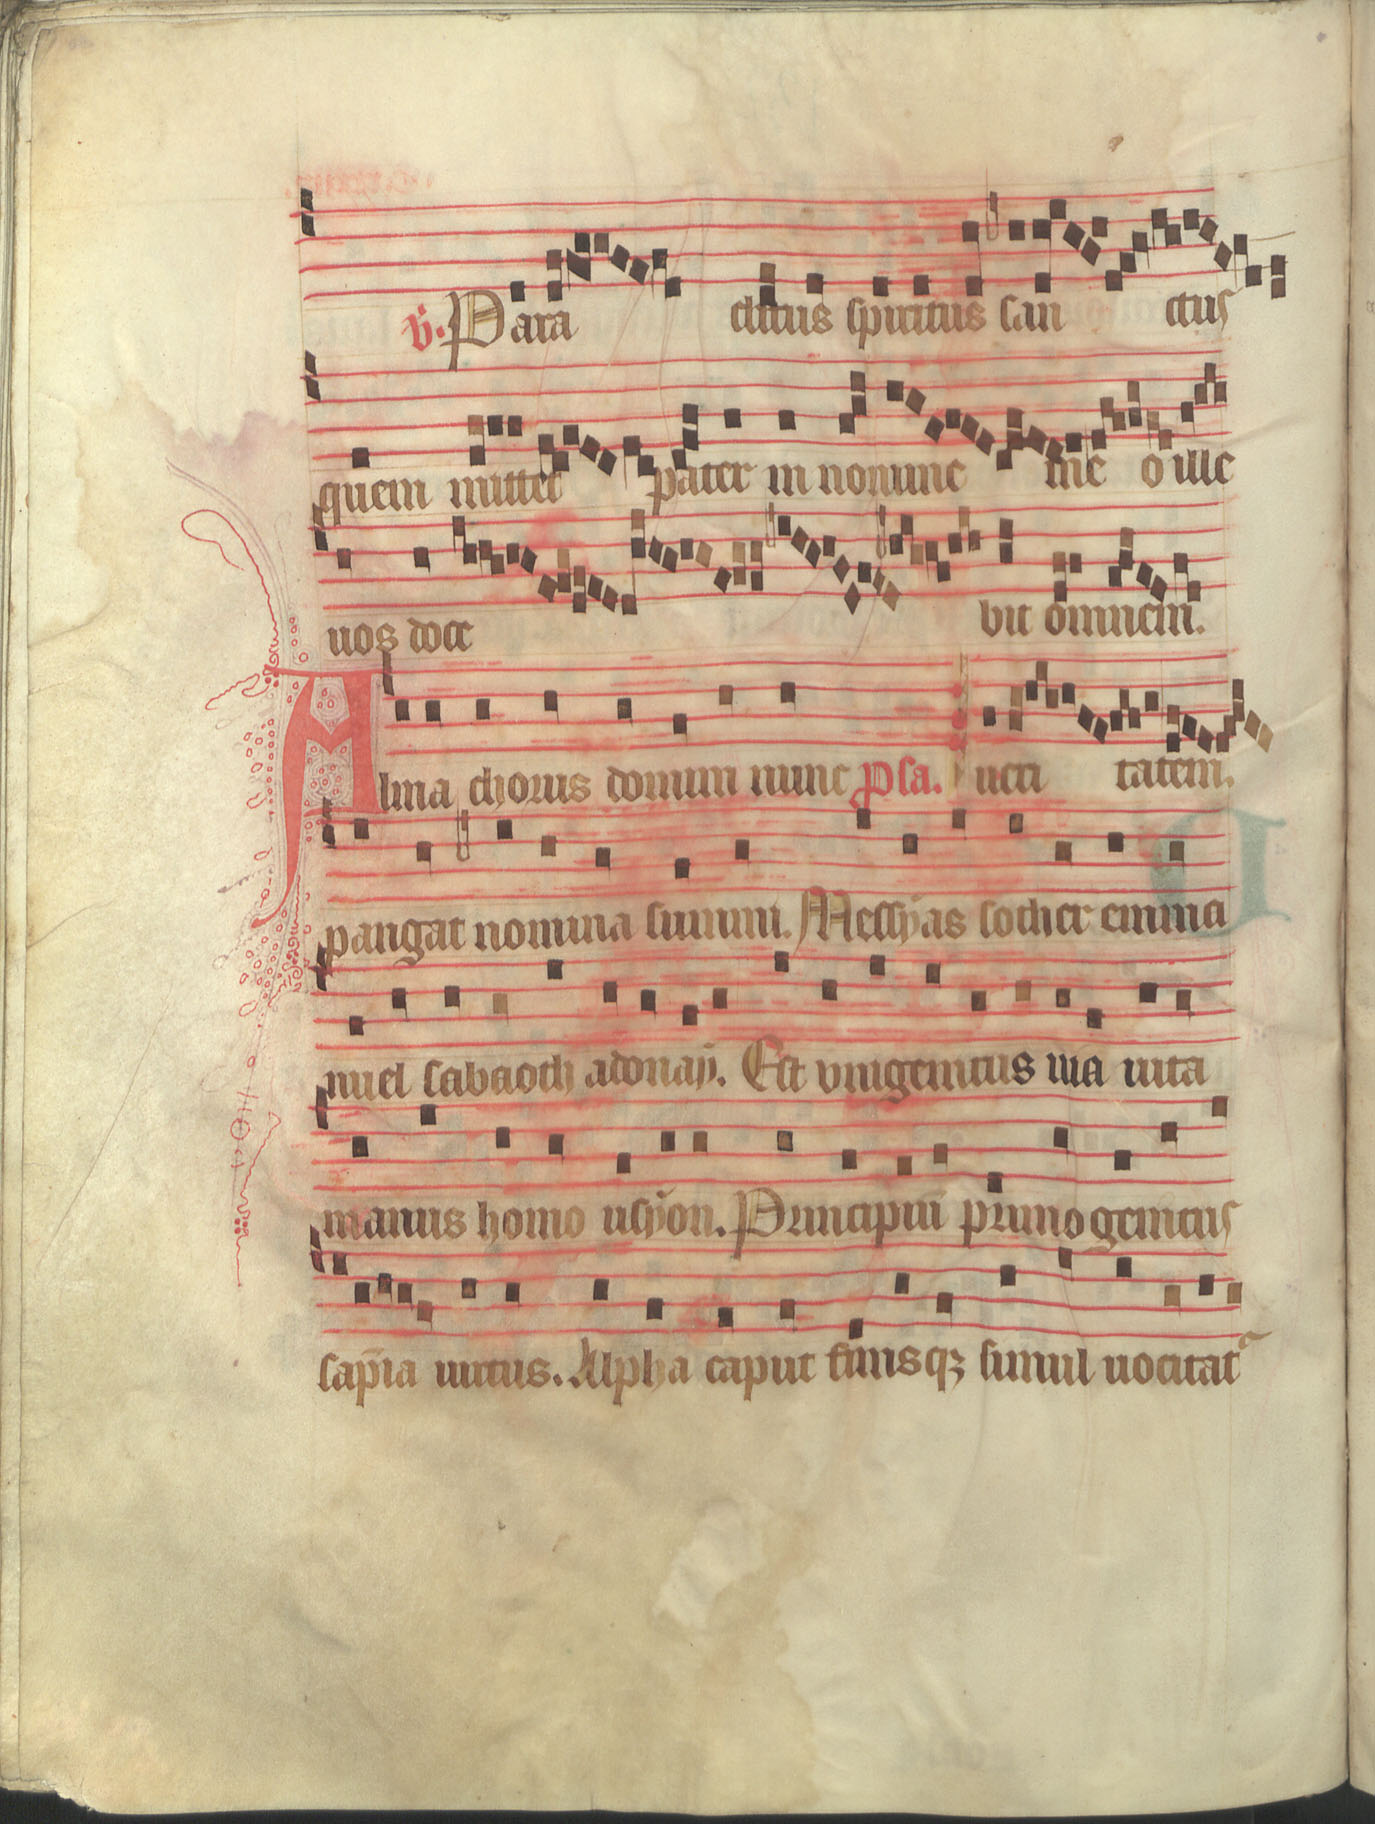 v̄. Para clitus spiritus san ctus
quem mittet pater in nomine me o ille
uos doce bit omnem.
Alma chorus domini nunc psa. ueri tatem.
pangat nomina summi. Messyas sother emma
nuel sabaoth adonaÿ. Est unigenitus uia uita
manus homo usÿon. Principiū primogenitus
sap̄ia uirtus. Alpha caput finisqꝫ simul uocitat᷑